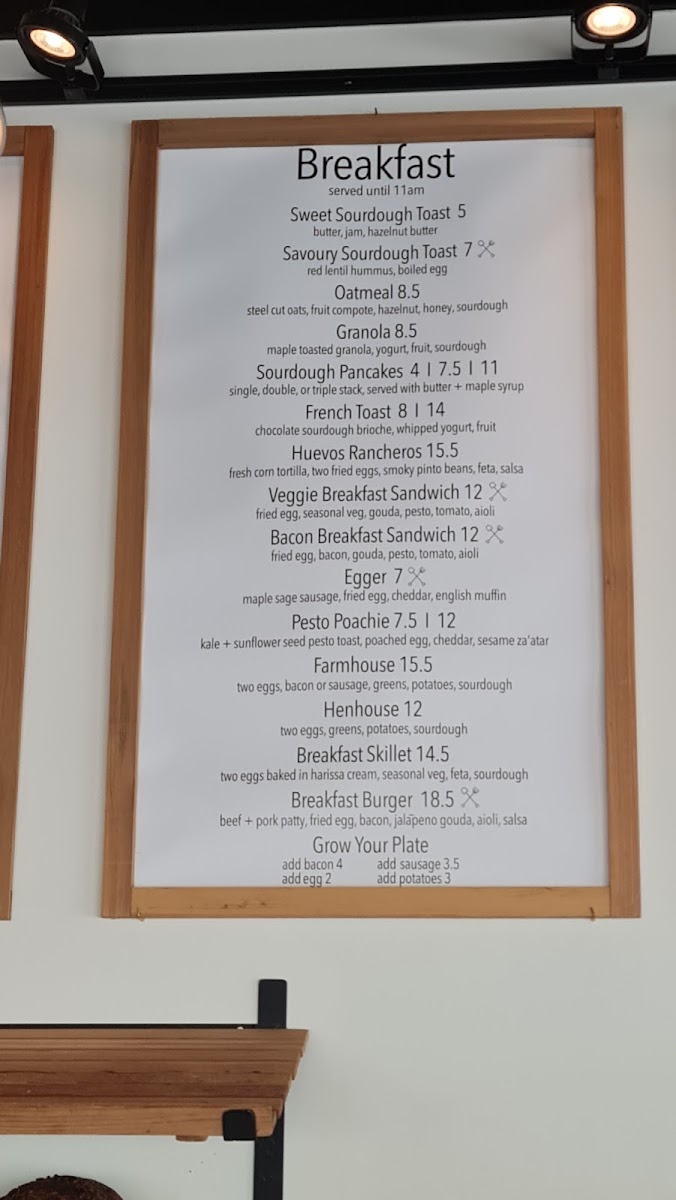 Breakfast
served until 11am
Sweet Sourdough Toast 5
butter, jam, hazelnut butter
Savoury Sourdough Toast 7
red lentil hummus, boiled egg
Oatmeal 8.5
steel cut oats, fruit compote, hazelnut, honey, sourdough
Granola 8.5
maple toasted granola, yogurt, fruit, sourdough
Sourdough Pancakes 4 | 7.5 | 11
single, double, or triple stack, served with butter + maple syrup
French Toast 8 | 14
chocolate sourdough brioche, whipped yogurt, fruit
Huevos Rancheros 15.5
fresh corn tortilla, two fried eggs, smoky pinto beans, feta, salsa
Veggie Breakfast Sandwich 12
fried egg, seasonal veg, gouda, pesto, tomato, aioli
Bacon Breakfast Sandwich 12
fried egg, bacon, gouda, pesto, tomato, aioli
Egger 7
maple sage sausage, fried egg, cheddar, english muffin
Pesto Poachie 7.5 | 12
kale + sunflower seed pesto toast, poached egg, cheddar, sesame za'atar
Farmhouse 15.5
two eggs, bacon or sausage, greens, potatoes, sourdough
Henhouse 12
two eggs, greens, potatoes, sourdough
Breakfast Skillet 14.5
two eggs baked in harissa cream, seasonal veg, feta, sourdough
Breakfast Burger 18.5
beef + pork patty, fried egg, bacon, jalapeno gouda, aioli, salsa
Grow Your Plate
add bacon 4 add sausage 3.5
add egg 2 add potatoes 3